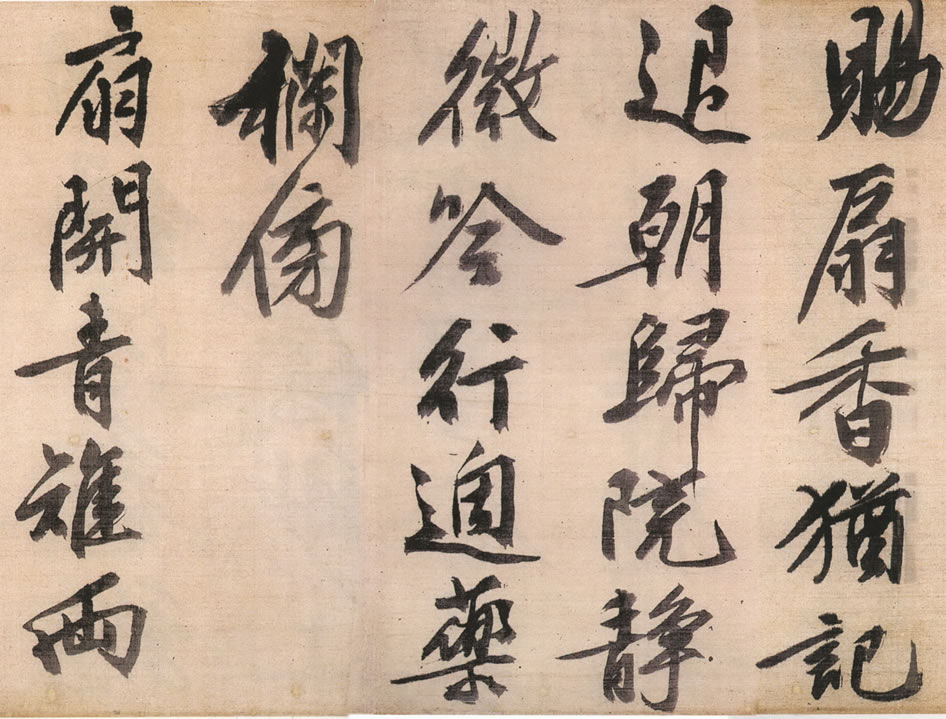 賜扇香猶記
退朝歸院靜
微吟行藥
欄傍
扇開青雉兩